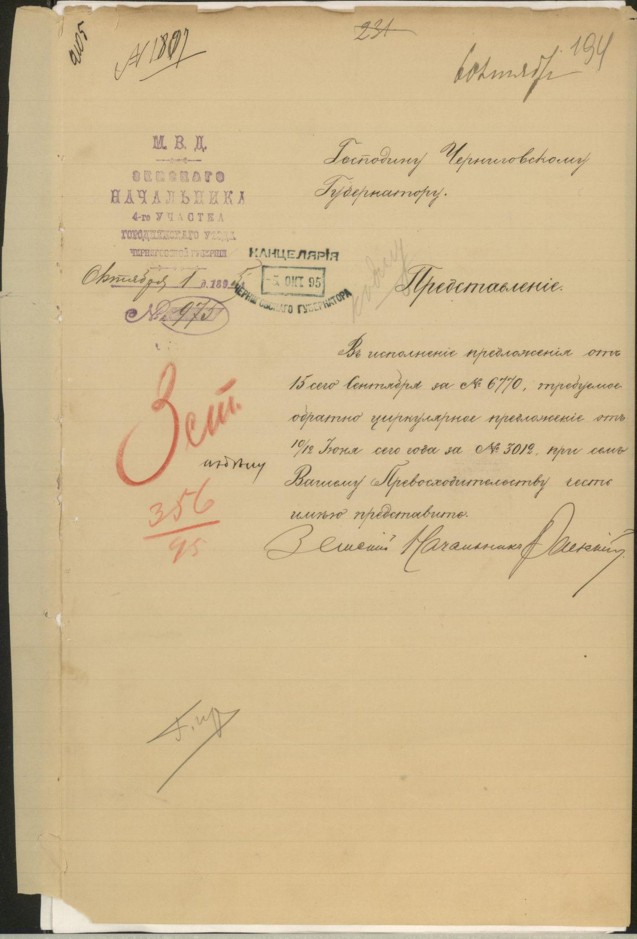 231
194
6 октября
№ 1807
М. В. Д.
ЗЕМСКАГО
НАЧАЛЬНИКА
4-го УЧАСТКА
ГОРОДНЯНСКАГО УѢЗДА
ЧЕРНИГОВСКОЙ ГУБЕРНІИ
Октября 1 д. 1895
№ 975
КАНЦЕЛЯРІЯ
-5. ОКТ. 95
ЧЕРНИГОВСКАГО ГУБЕРНАТОРА
Господину Черниговскому
Губернатору.
Представленіе.
Въ исполненіе предложенія отъ
15 сего Сентября за № 6770, требуемое
обратно циркулярное предложеніе отъ
10/12 Іюня сего года за № 3012, при семъ
Вашему Превосходительству честь
имѣю представить.
Земскій Начальникъ
3 ст.
356
95